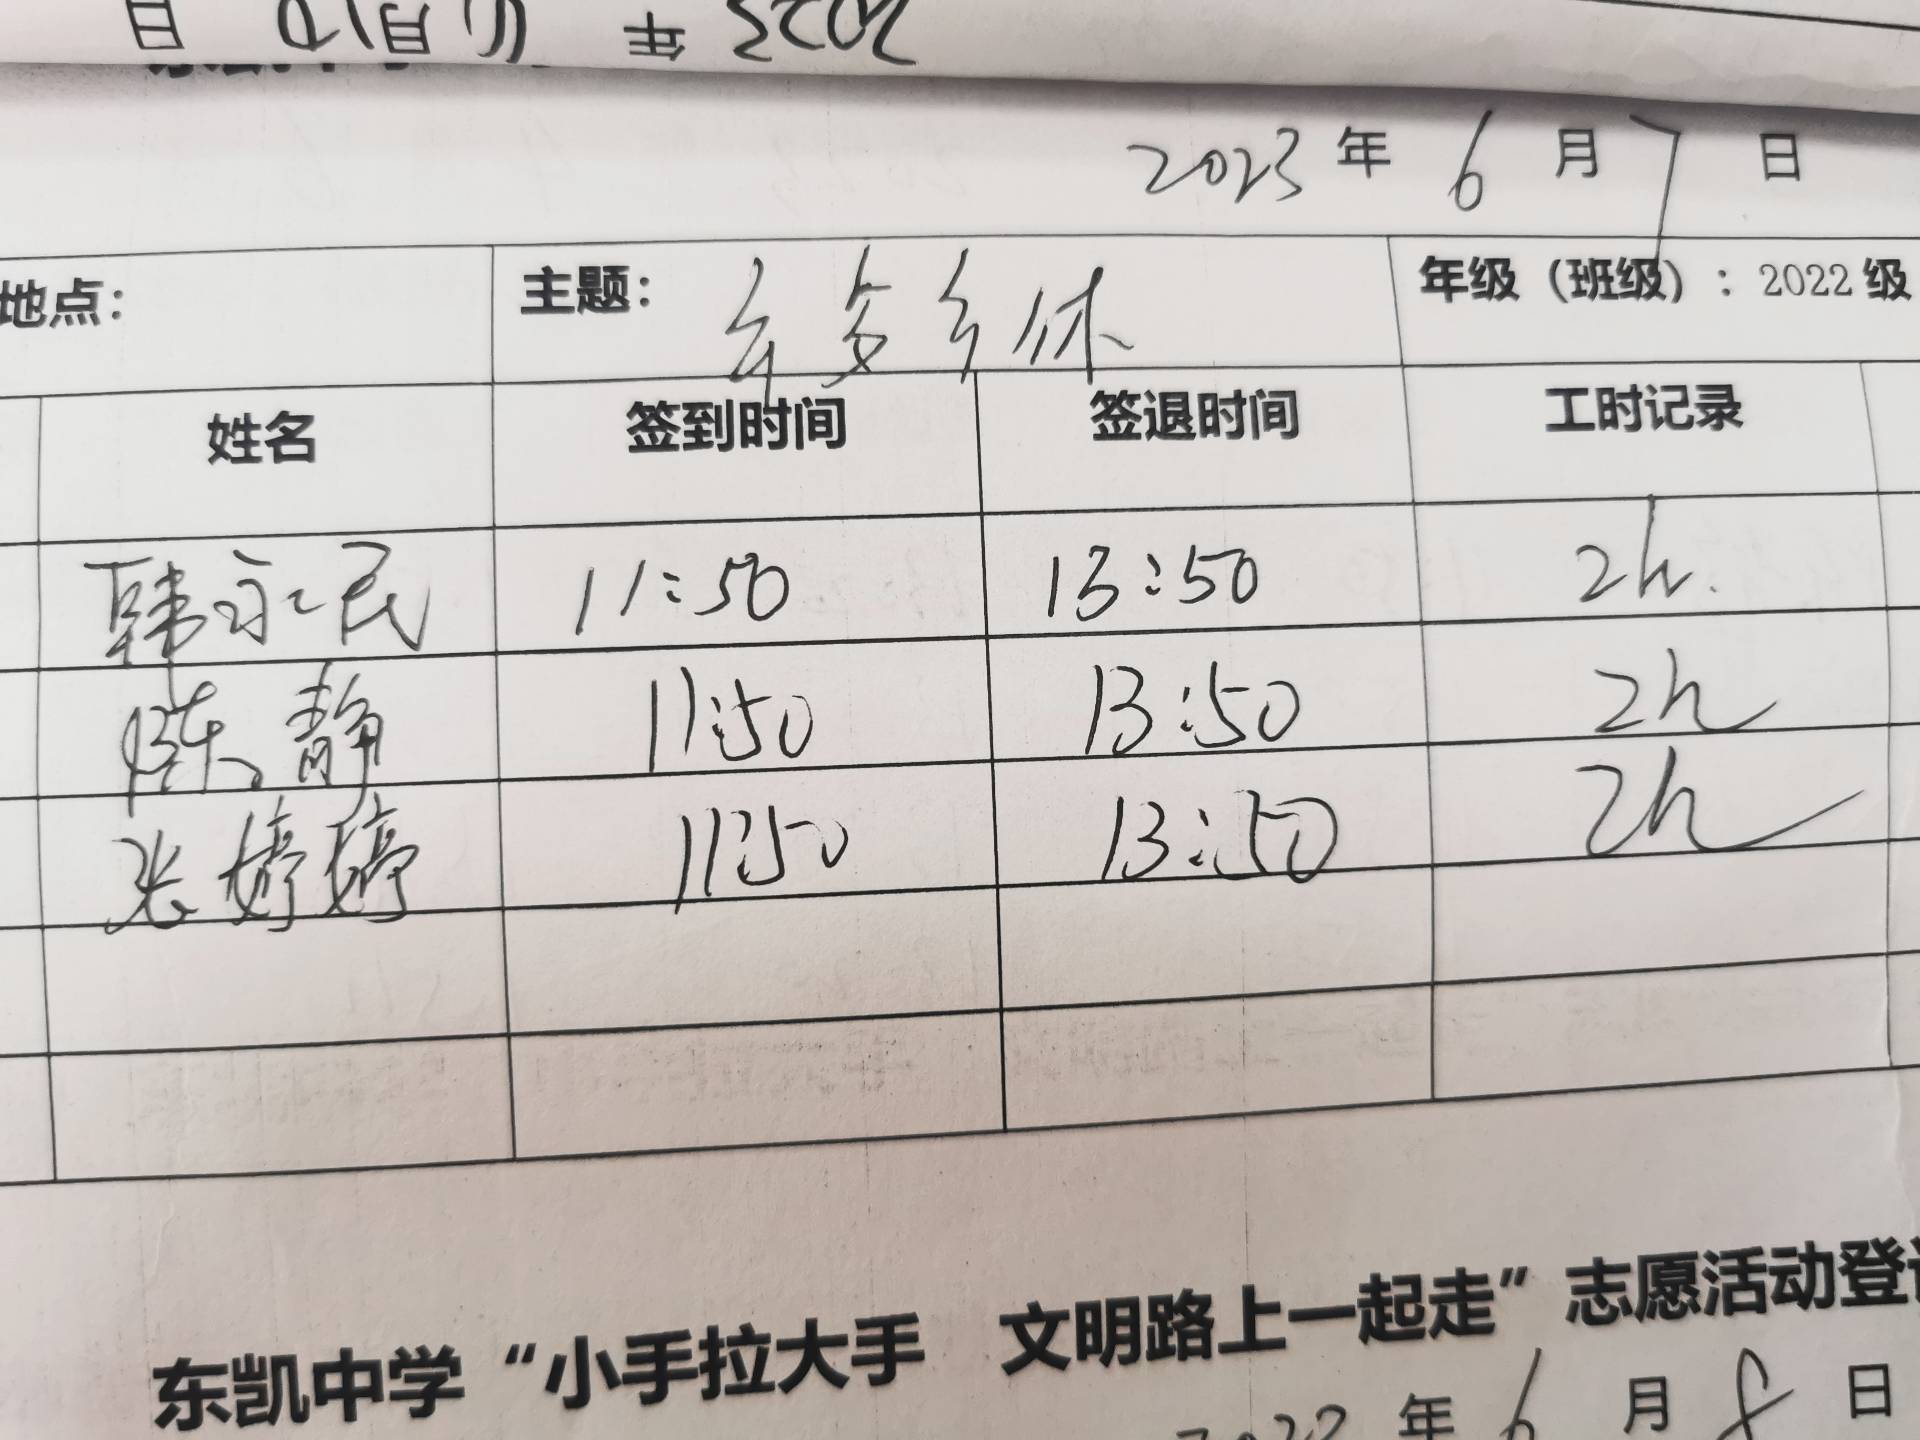 2023 年 6 月 10 日
2023 年 6 月 7 日
地点： 主题： 年级（班级）：2022 级
姓名 签到时间 签退时间 工时记录
韩永民 11:50 13:50 2h.
陈静 11:50 13:50 2h
张婷婷 11:50 13:50 2h
东凯中学“小手拉大手 文明路上一起走”志愿活动登记
年 6 月 8 日